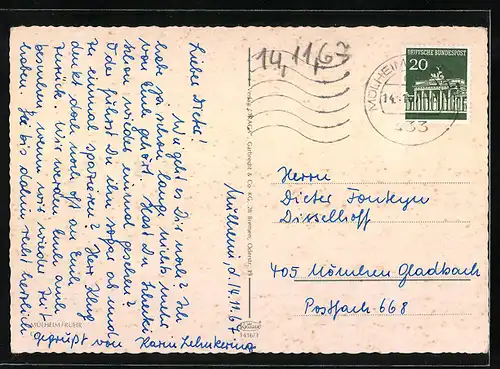 14.11.67
Mülheim, d 14.11.67
Lieber Dieter!
Wie geht es Dir wohl? Ich
habe ja schon lange nichts mehr
von Euch gehört. Hast Du
schon wieder einmal gesehen?
Oder führst Du ihn sogar ab und
zu einmal spazieren? Herr Klug
denkt doch noch oft an Euch
zurück. Wir werden Euch auch
besuchen wenn wir wieder Zeit
haben. Bis dahin recht herzlich
gegrüßt von Karin Lehnkering
MÜLHEIM/RUHR
Gebrecht & Co KG., 28 Bremen
KRÜGER
DEUTSCHE BUNDESPOST
20
MÜLHEIM
433
Herrn
Dieter Fonteyn
Disselhoff
405 Mönchen Gladbach
Postfach 668